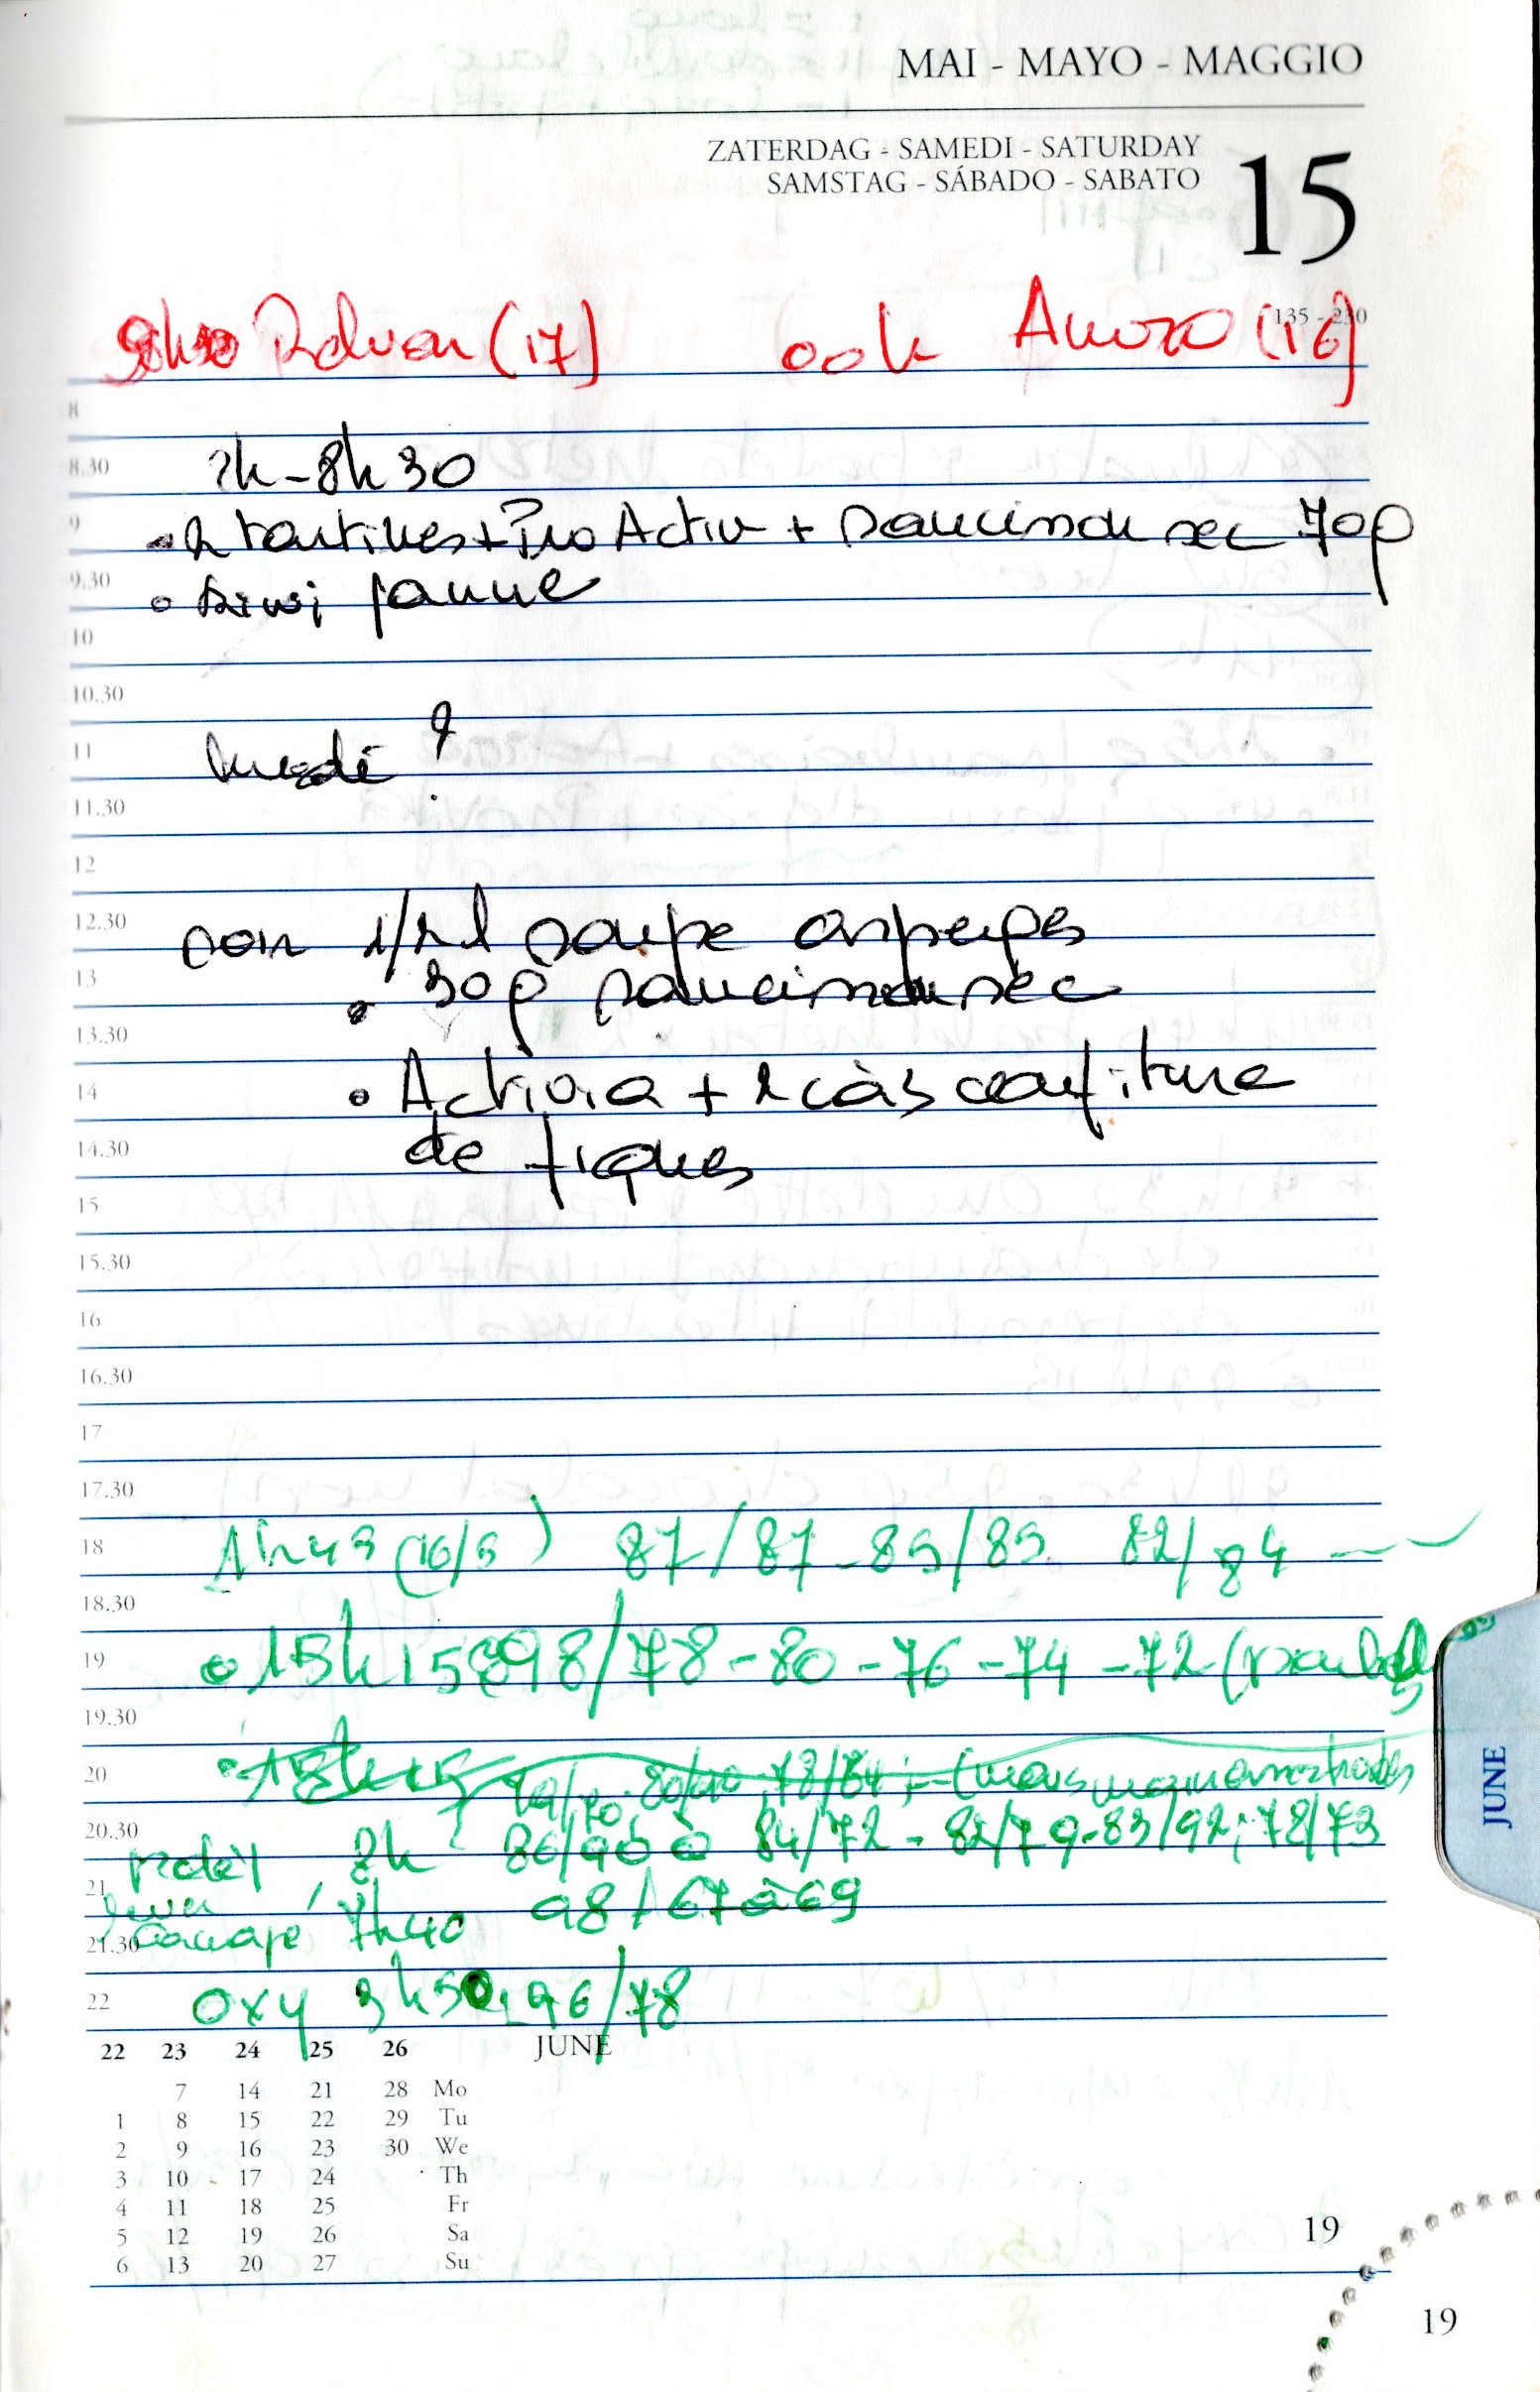 MAI - MAYO - MAGGIO
ZATERDAG - SAMEDI - SATURDAY
SAMSTAG - SÁBADO - SABATO
15
135 - 230
(17) 00h (16)
8
8.30 7h-8h30
9 2 tartines + Pro Activ + saucisson sec 70g
9.30 kiwi jaune
10
10.30
11 ?
11.30
12
12.30 soir 1/2 l soupe asperges
13 30g saucisson sec
13.30
14 Activia + 2 càs confiture
14.30 de figues
15
15.30
16
16.30
17
17.30
18 1h45 (16/5) 87/87 - 85/85 82/84
18.30
19 15h15 98/78 - 80 - 76 - 74 - 72
19.30
20 78/84
20.30 8h 86/90 à 84/72 - 82/79 - 83/92; 78/73
21 7h40 98/67 à 69
21.30 canapé
22 oxy 3h50 96/78
22 23 24 25 26 JUNE
7 14 21 28 Mo
1 8 15 22 29 Tu
2 9 16 23 30 We
3 10 17 24 Th
4 11 18 25 Fr
5 12 19 26 Sa
6 13 20 27 Su
JUNE
19
19